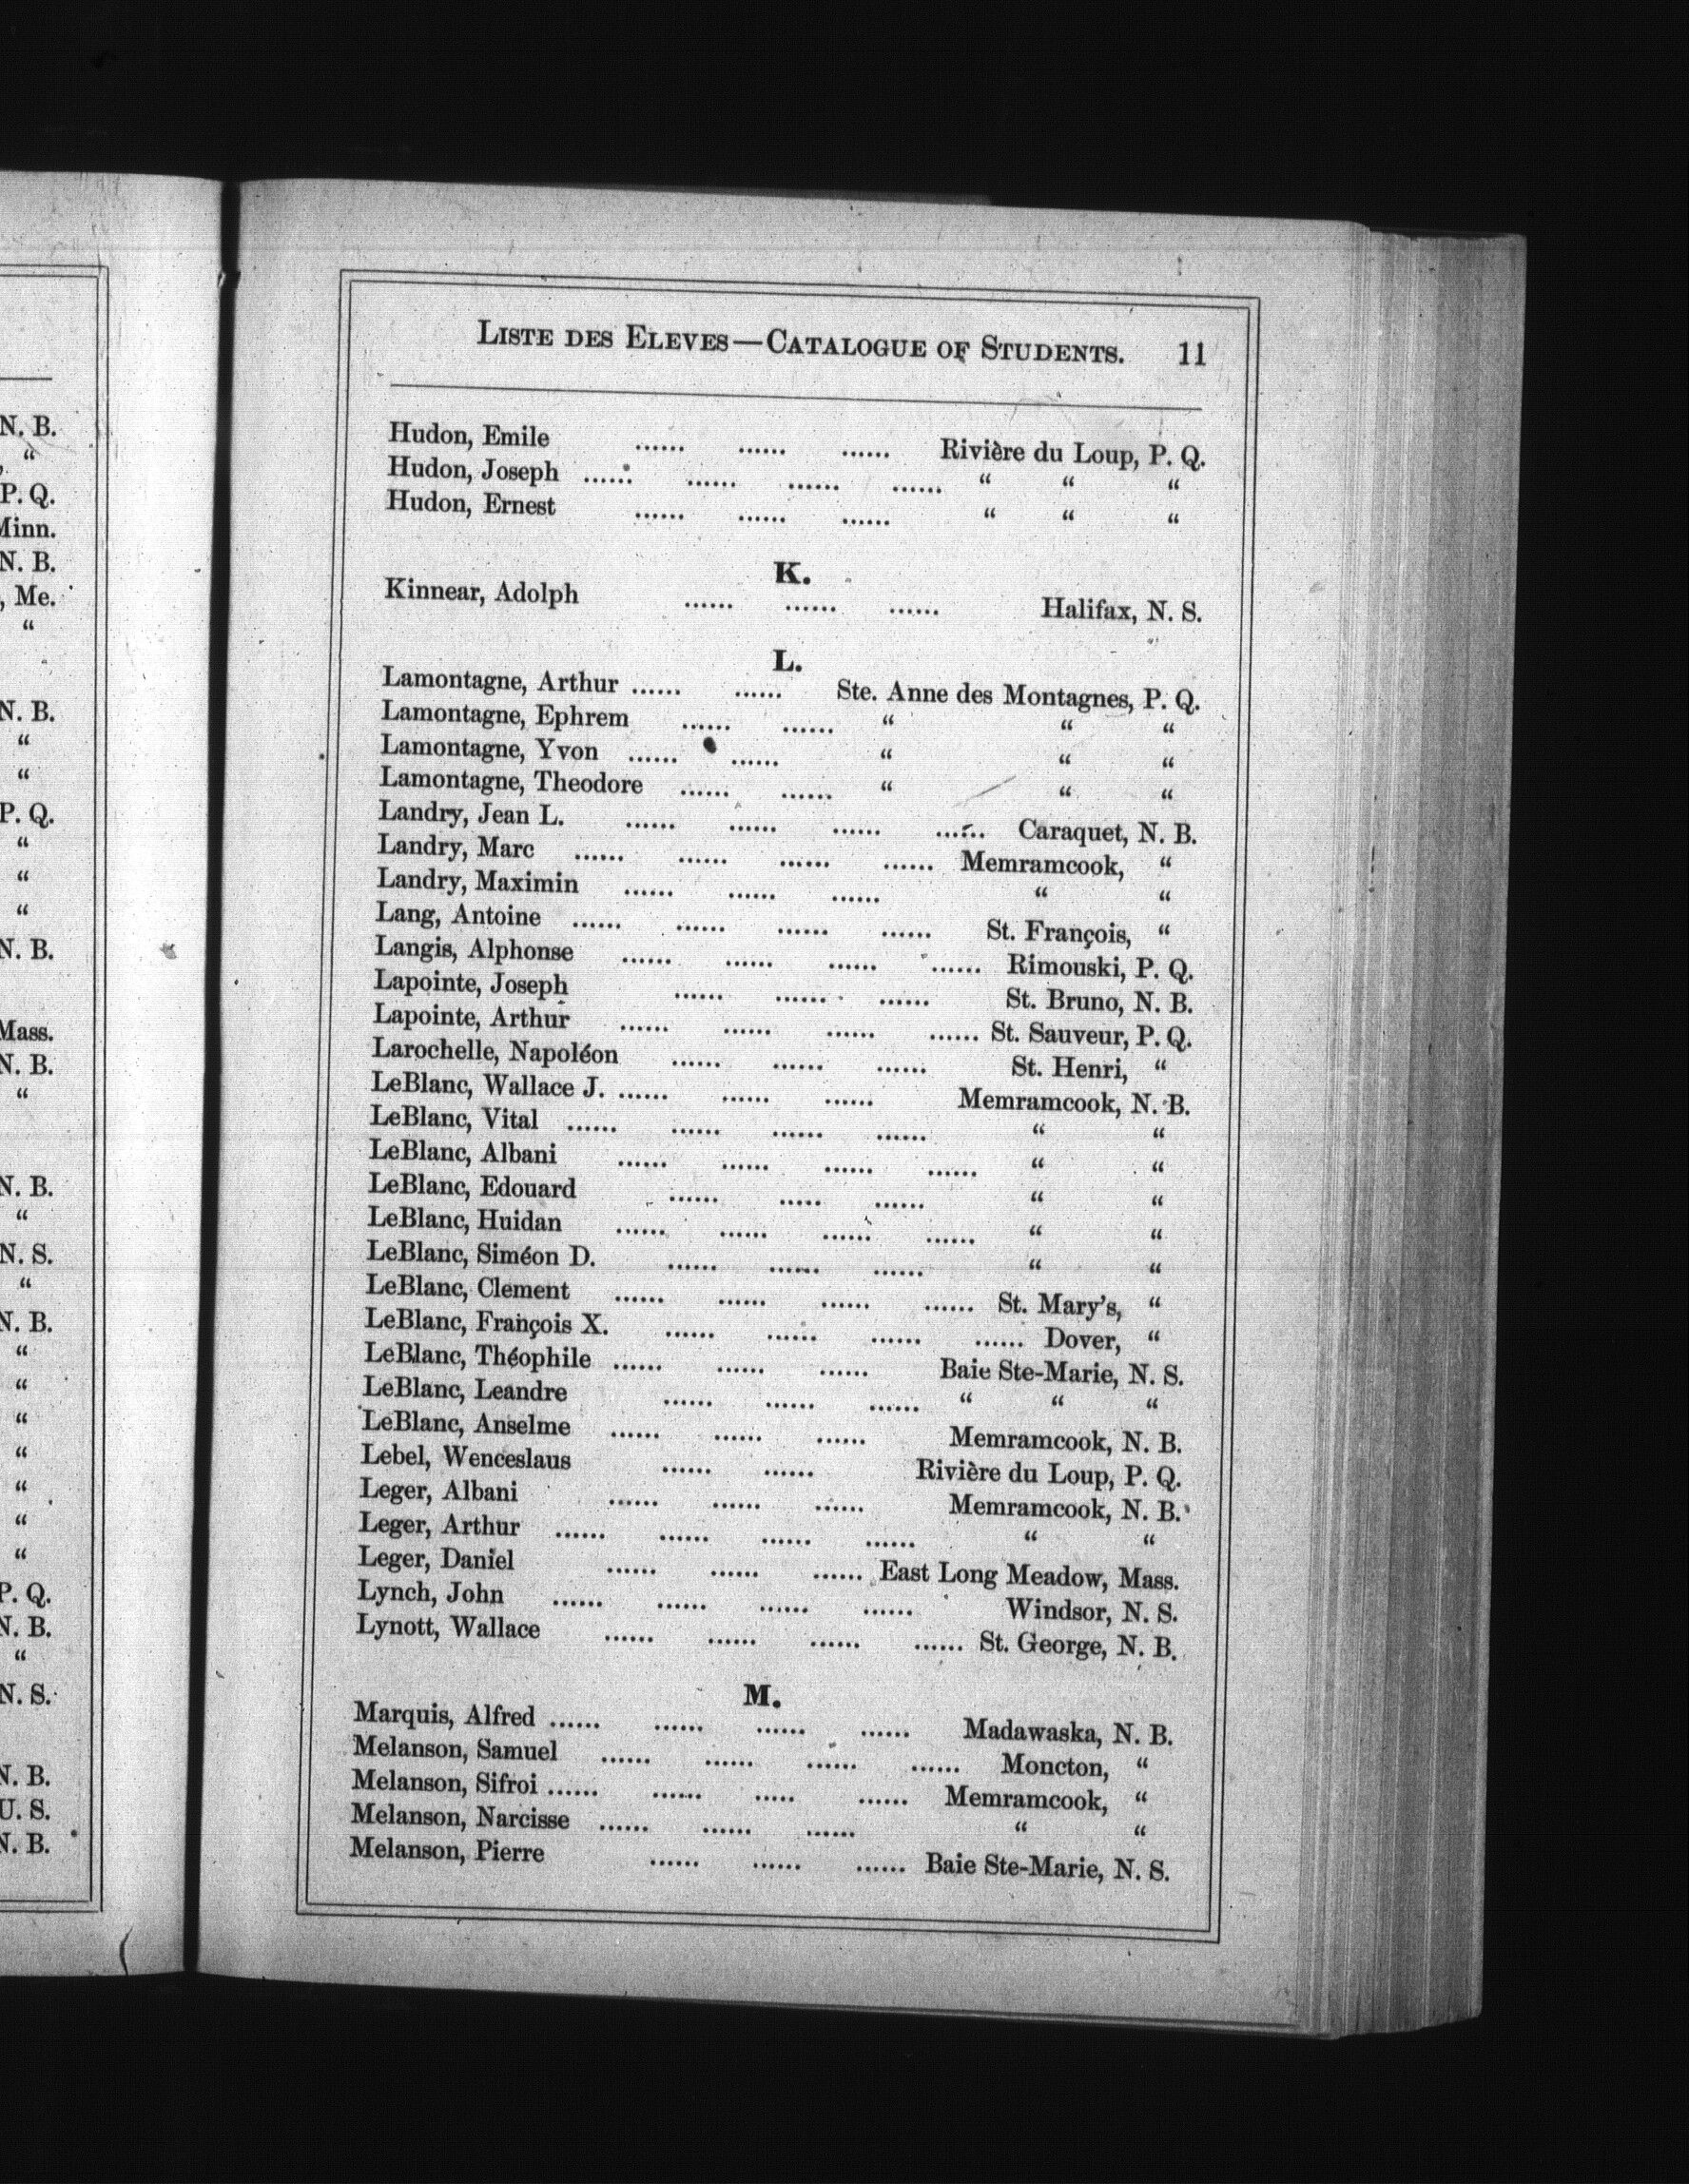 N. B.
“
P. Q.
Minn.
N. B.
, Me.
“
N. B.
“
“
P. Q.
“
“
“
N. B.
Mass.
N. B.
“
N. B.
“
N. S.
“
N. B.
“
“
“
“
“
“
“
P. Q.
N. B.
“
N. S.
N. B.
U. S.
N. B.
LISTE DES ELEVES—CATALOGUE OF STUDENTS. 11
Hudon, Emile ...... ...... ...... Rivière du Loup, P. Q.
Hudon, Joseph ...... ...... ...... ...... “ “ “
Hudon, Ernest ...... ...... ...... “ “ “
K.
Kinnear, Adolph ...... ...... ...... Halifax, N. S.
L.
Lamontagne, Arthur ...... ...... Ste. Anne des Montagnes, P. Q.
Lamontagne, Ephrem ...... ...... “ “ “
Lamontagne, Yvon ...... ...... “ “ “
Lamontagne, Theodore ...... ...... “ “ “
Landry, Jean L. ...... ...... ...... ...... Caraquet, N. B.
Landry, Marc ...... ...... ...... ...... Memramcook, “
Landry, Maximin ...... ...... ...... “ “
Lang, Antoine ...... ...... ...... ...... St. François, “
Langis, Alphonse ...... ...... ...... ...... Rimouski, P. Q.
Lapointe, Joseph ...... ...... ...... St. Bruno, N. B.
Lapointe, Arthur ...... ...... ...... ...... St. Sauveur, P. Q.
Larochelle, Napoléon ...... ...... ...... St. Henri, “
LeBlanc, Wallace J. ...... ...... ...... Memramcook, N. B.
LeBlanc, Vital ...... ...... ...... ...... “ “
LeBlanc, Albani ...... ...... ...... ...... “ “
LeBlanc, Edouard ...... ..... ...... “ “
LeBlanc, Huidan ...... ...... ...... ...... “ “
LeBlanc, Siméon D. ...... ...... ...... “ “
LeBlanc, Clement ...... ...... ...... ...... St. Mary's, “
LeBlanc, François X. ...... ...... ...... ...... Dover, “
LeBlanc, Théophile ...... ...... ...... Baie Ste-Marie, N. S.
LeBlanc, Leandre ...... ...... ...... “ “ “
LeBlanc, Anselme ...... ...... ...... Memramcook, N. B.
Lebel, Wenceslaus ...... ...... Rivière du Loup, P. Q.
Leger, Albani ...... ...... ...... Memramcook, N. B.
Leger, Arthur ...... ...... ...... ...... “ “
Leger, Daniel ...... ...... ...... East Long Meadow, Mass.
Lynch, John ...... ...... ...... ...... Windsor, N. S.
Lynott, Wallace ...... ...... ...... ...... St. George, N. B.
M.
Marquis, Alfred ...... ...... ...... ...... Madawaska, N. B.
Melanson, Samuel ...... ...... ...... ...... Moncton, “
Melanson, Sifroi ...... ...... ..... ...... Memramcook, “
Melanson, Narcisse ...... ...... ...... “ “
Melanson, Pierre ...... ...... ...... Baie Ste-Marie, N. S.